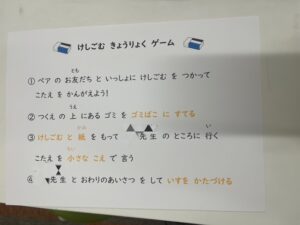 けしごむ きょうりょく ゲーム
① ペア の お友だち と いっしょに けしごむ を つかって
こたえ を かんがえよう!
② つくえ の 上 に ある ゴミ を ゴミばこ に すてる
③ けしごむ と 紙 を もって 先生 の ところ に 行く
こたえ を 小さな こえ で 言う
④ 先生 と おわりのあいさつ を して いすを かたづける